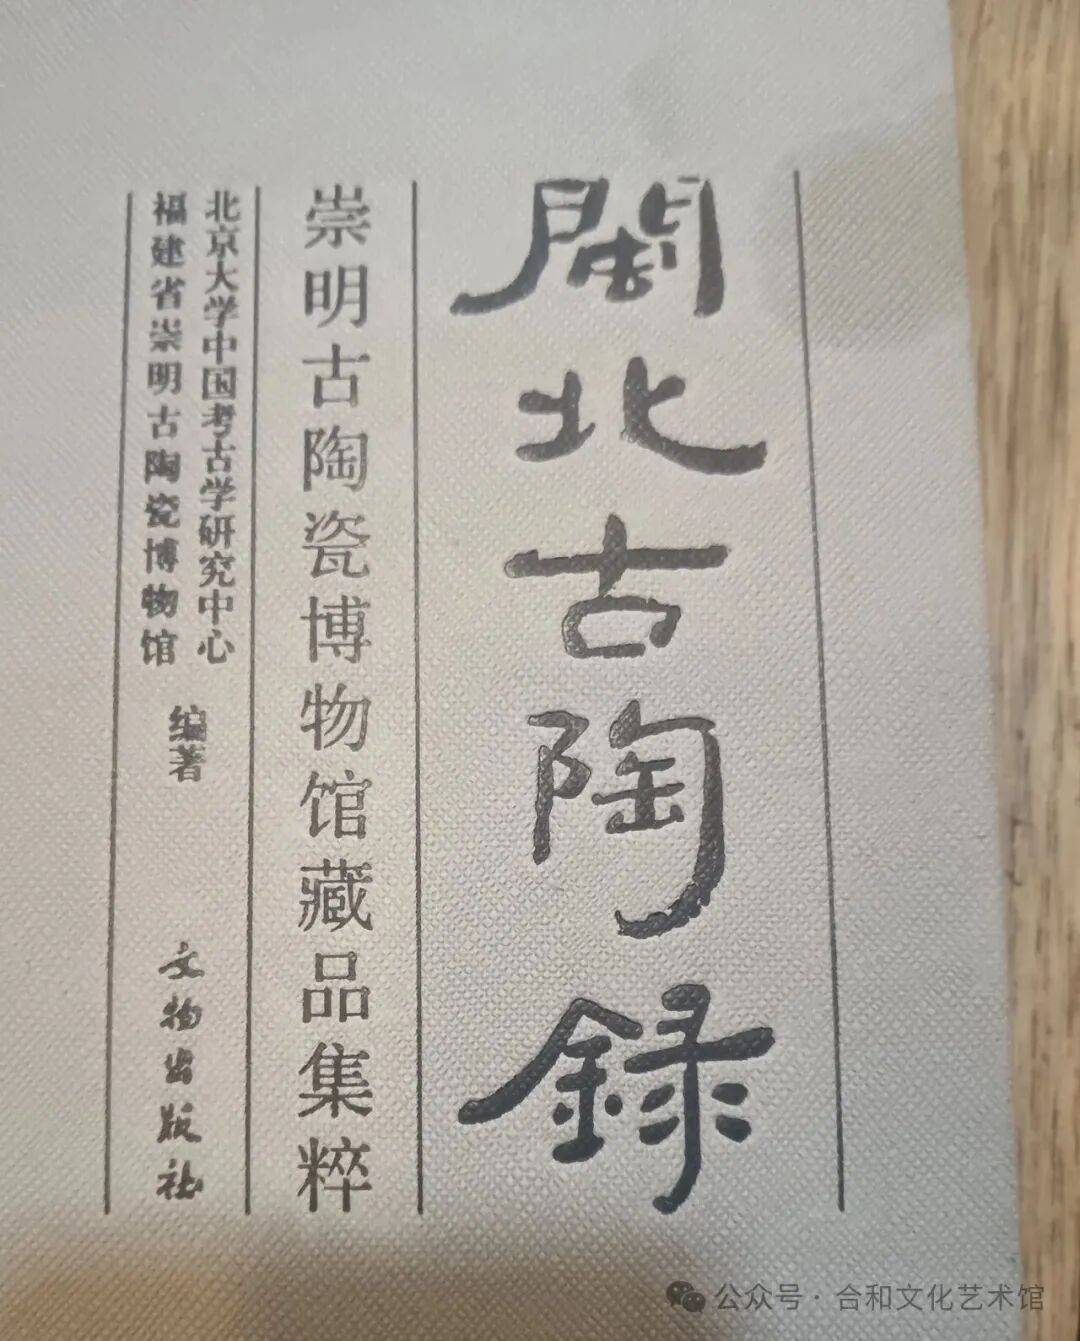 閩北古陶録
崇明古陶瓷博物馆藏品集粹
北京大学中国考古学研究中心
福建省崇明古陶瓷博物馆
编著
文物出版社
公众号·合和文化艺术馆